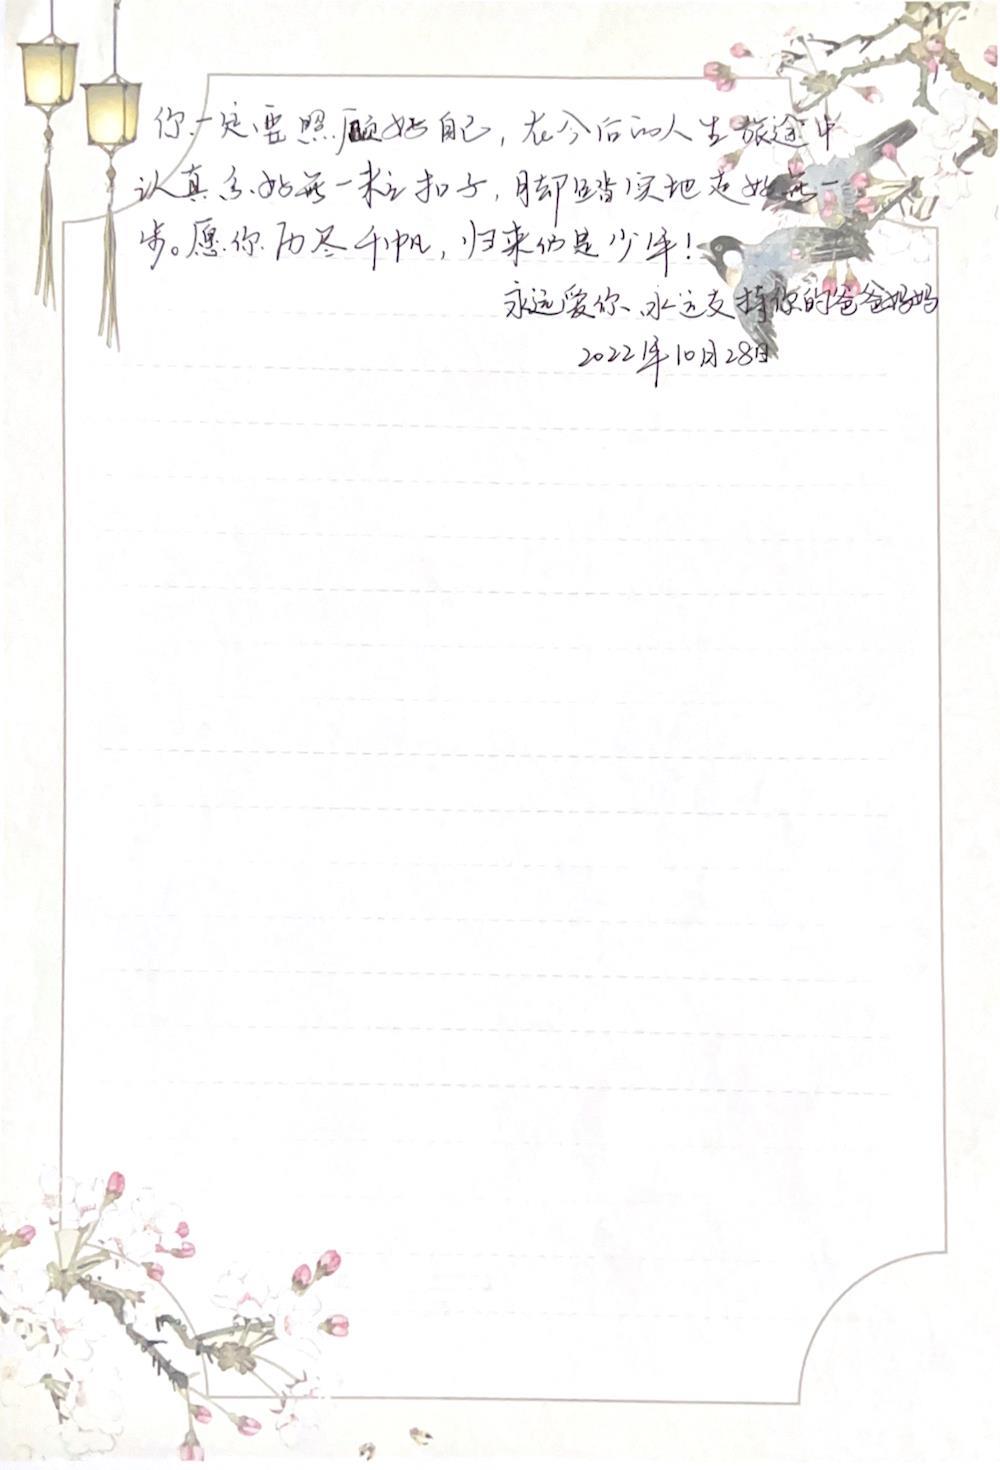 你一定要照顾好自己，在今后的人生旅途中
认真系好每一粒扣子，脚踏实地走好每一
步。愿你历尽千帆，归来仍是少年！
永远爱你、永远支持你的爸爸妈妈
2022年10月28日